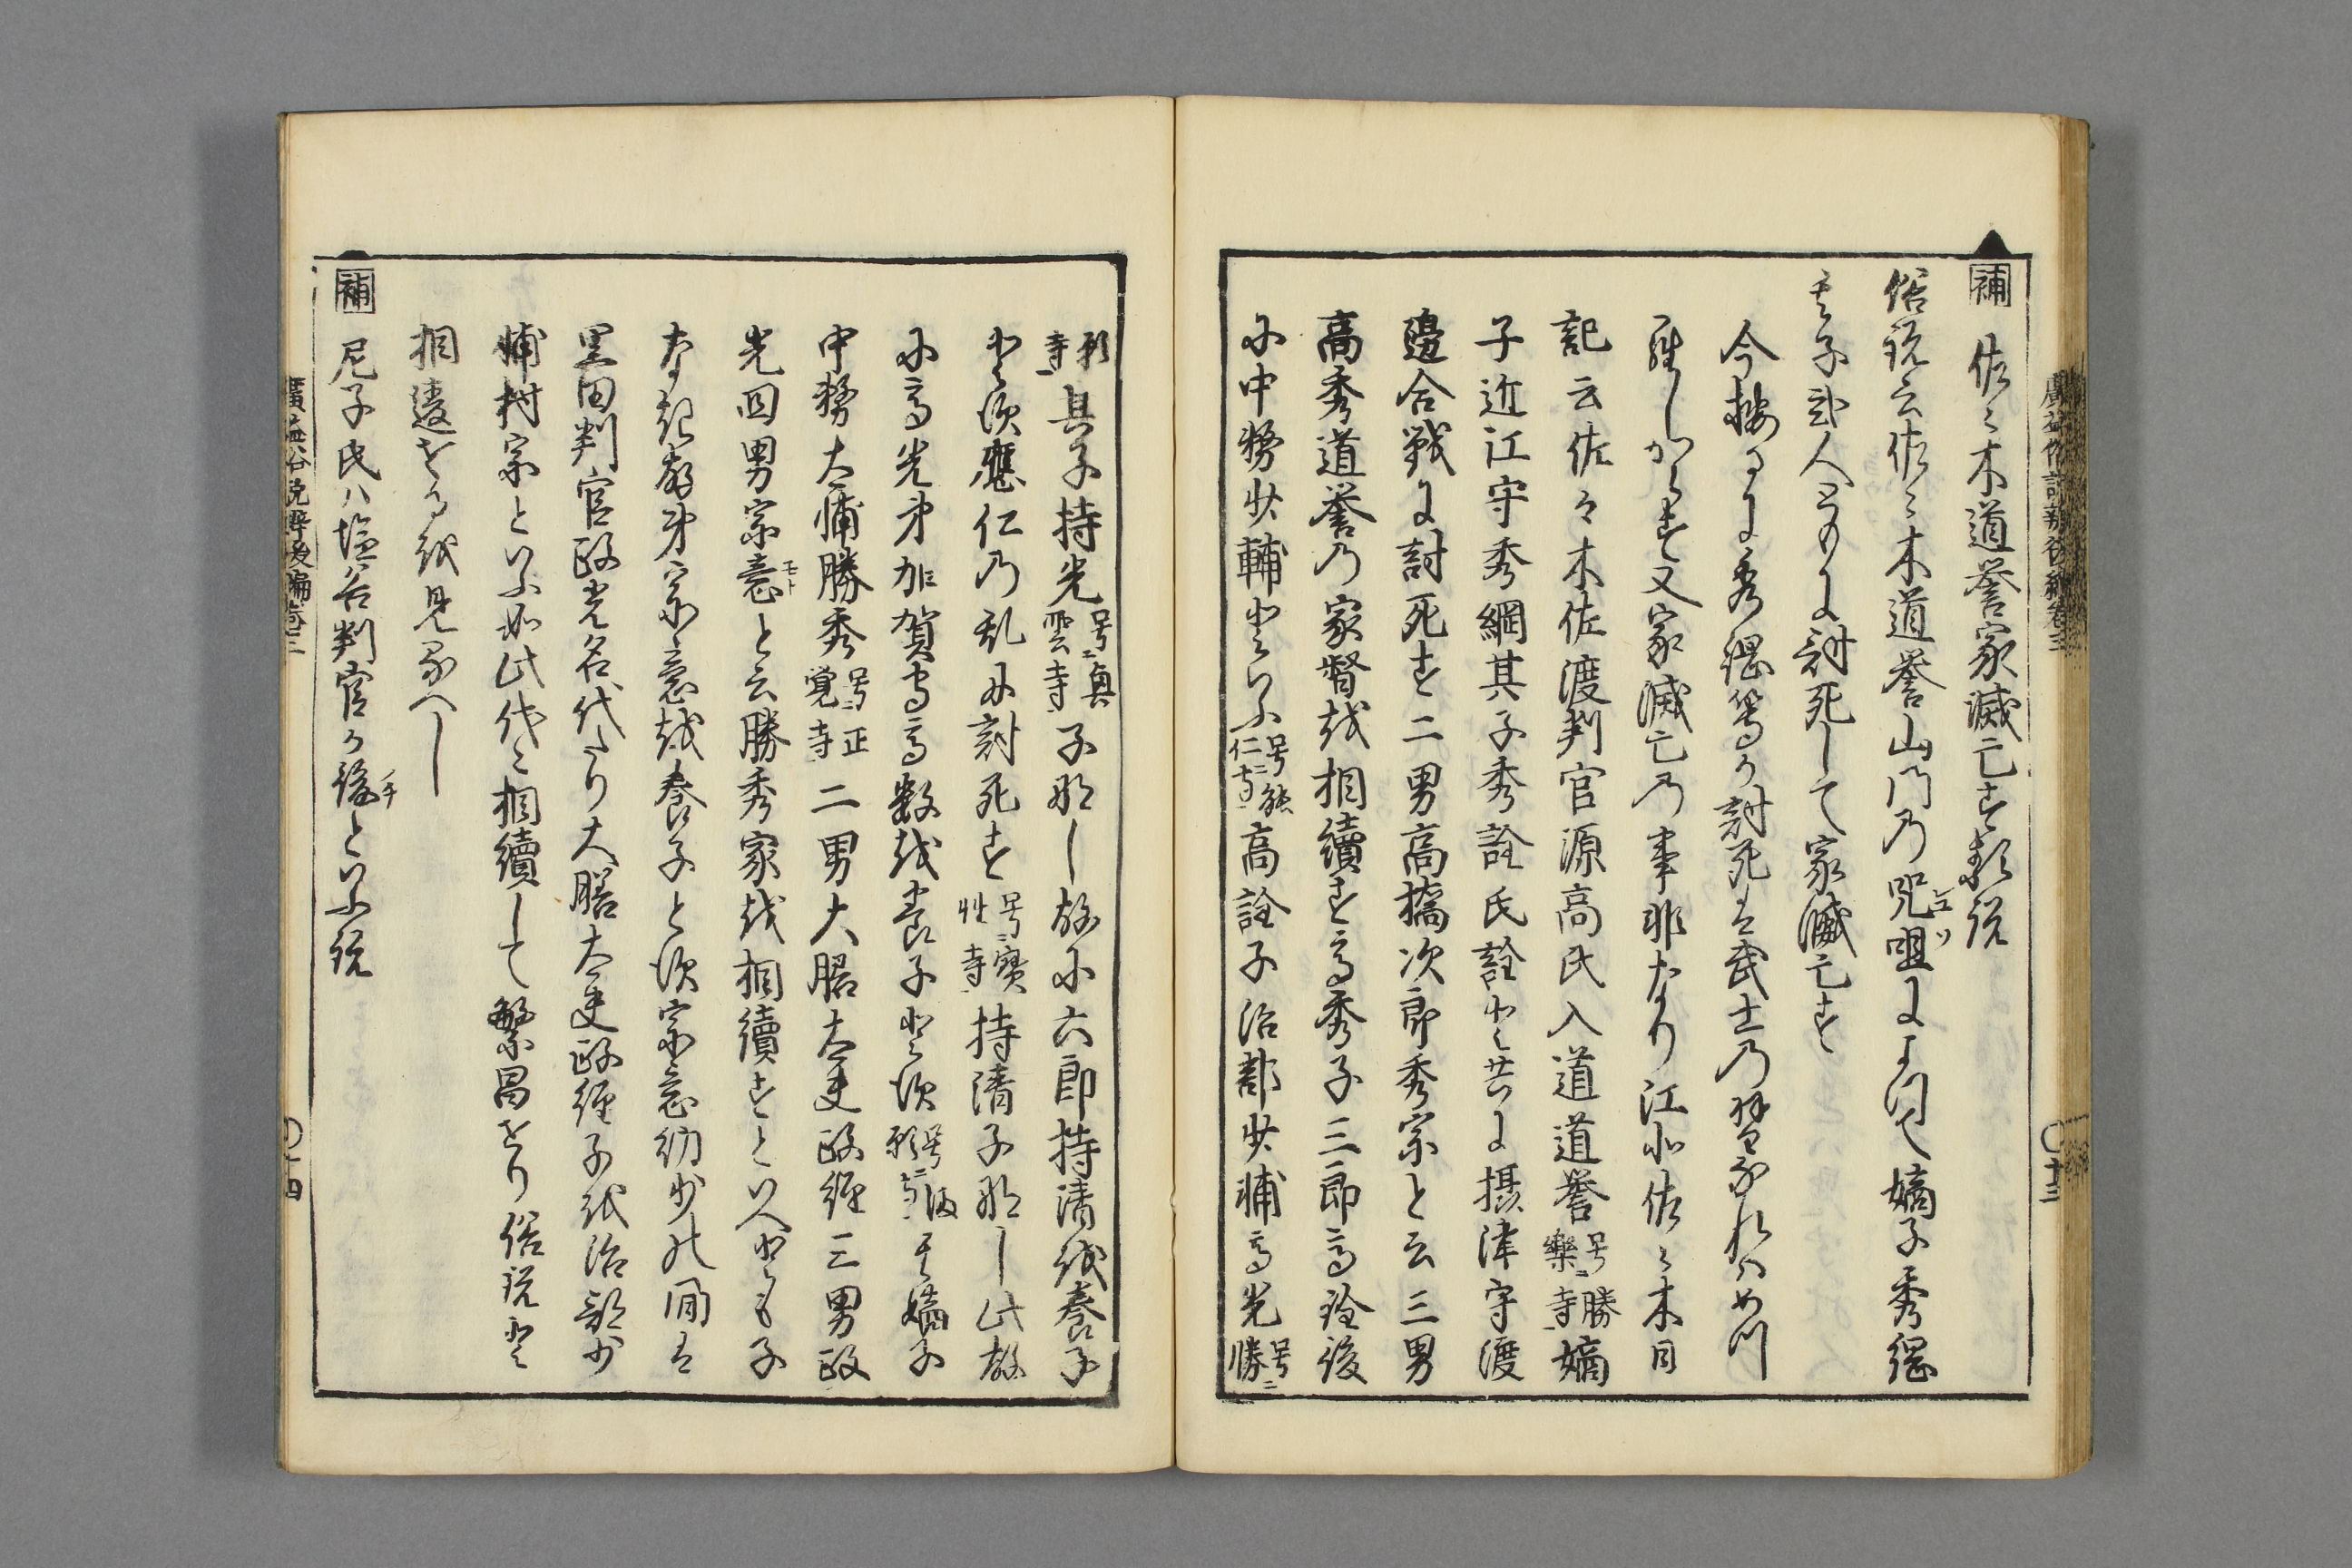 補 佐々木道誉家滅亡す類説
俗説云佐々木道誉山門の呪咀によつて嫡子秀綱
其子弐人ともに討死して家滅亡す
今按るに秀綱等か討死は武士の習なれはめつ
らしからす又家滅亡の事非なり江北佐々木目
記云佐々木佐渡判官源高氏入道道誉号勝樂寺嫡
子近江守秀綱其子秀詮氏詮と共に摂津守渡
邉合戦に討死す二男高橋次郎秀宗と云三男
高秀道誉の家督を相續す高秀子三郎高詮後
に中務少輔といふ号能仁寺高詮子治部少輔高光号勝
願寺其子持光号真雲寺子なし故に六郎持清を養子
とす應仁の乱に討死す号寶性寺持清子なし此故
に高光弟加賀守高数を養子とす号満願寺其嫡子
中務大輔勝秀号正覚寺二男大膳大夫政經三男政
光四男宗意と云勝秀家を相續すといへとも子
なき故弟宗意を養子とす宗意幼少の間は
黒田判官政光名代たり大膳大夫政經子を治部少
輔材宗といふ如此代々相續して繁昌せり俗説と
相違せるを見るへし
補 尼子氏ハ塩谷判官か後といふ説
廣益俗説辨後編卷三
〇十三
廣益俗説辨後編卷三
〇十四